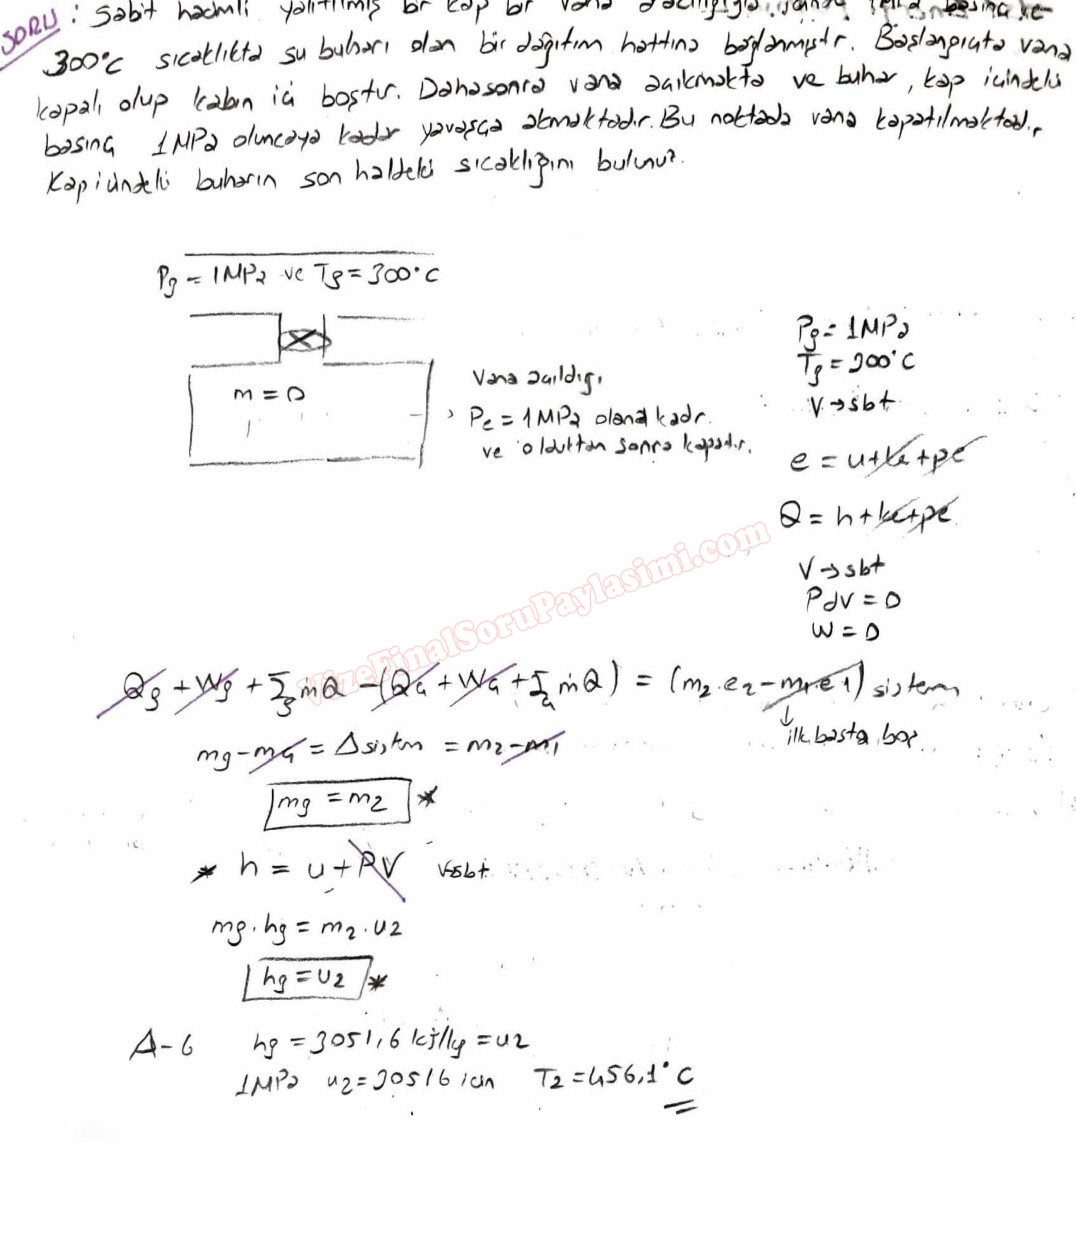 SORU : Sabit hacimli yalıtılmış bir kap bir vana aracılığıyla, içinde 1MPa basınç ve
300°C sıcaklıkta su buharı olan bir dağıtım hattına bağlanmıştır. Başlangıçta vana
kapalı olup kabın içi boştur. Daha sonra vana açılmakta ve buhar, kap içindeki
basınç 1MPa oluncaya kadar yavaşça akmaktadır. Bu noktada vana kapatılmaktadır,
Kap içindeki buharın son haldeki sıcaklığını bulunuz.
Pg = 1MPa ve Tg = 300°C
m = 0
Vana açıldığı,
Pc = 1MPa olana kadar.
ve olduktan sonra kapatır.
Pg = 1MPa
Tg = 300°C
V → sbt
e = u + ke + pe
Q = h + ke + pe
V → sbt
PdV = 0
W = 0
Qg + Wg + Σg ṁQ - (Qç + Wç + Σç ṁQ) = (m2.e2 - m1.e1) sistem
↓ ilk başta boş.
mg - mç = Δsistem = m2 - m1
mg = m2 *
* h = u + PV V→sbt
mg.hg = m2.u2
hg = u2 *
A-6 hg = 3051,6 kj/kg = u2
1MPa u2 = 30516 için T2 = 456,1°C
VizeFinalSoruPaylasimi.com